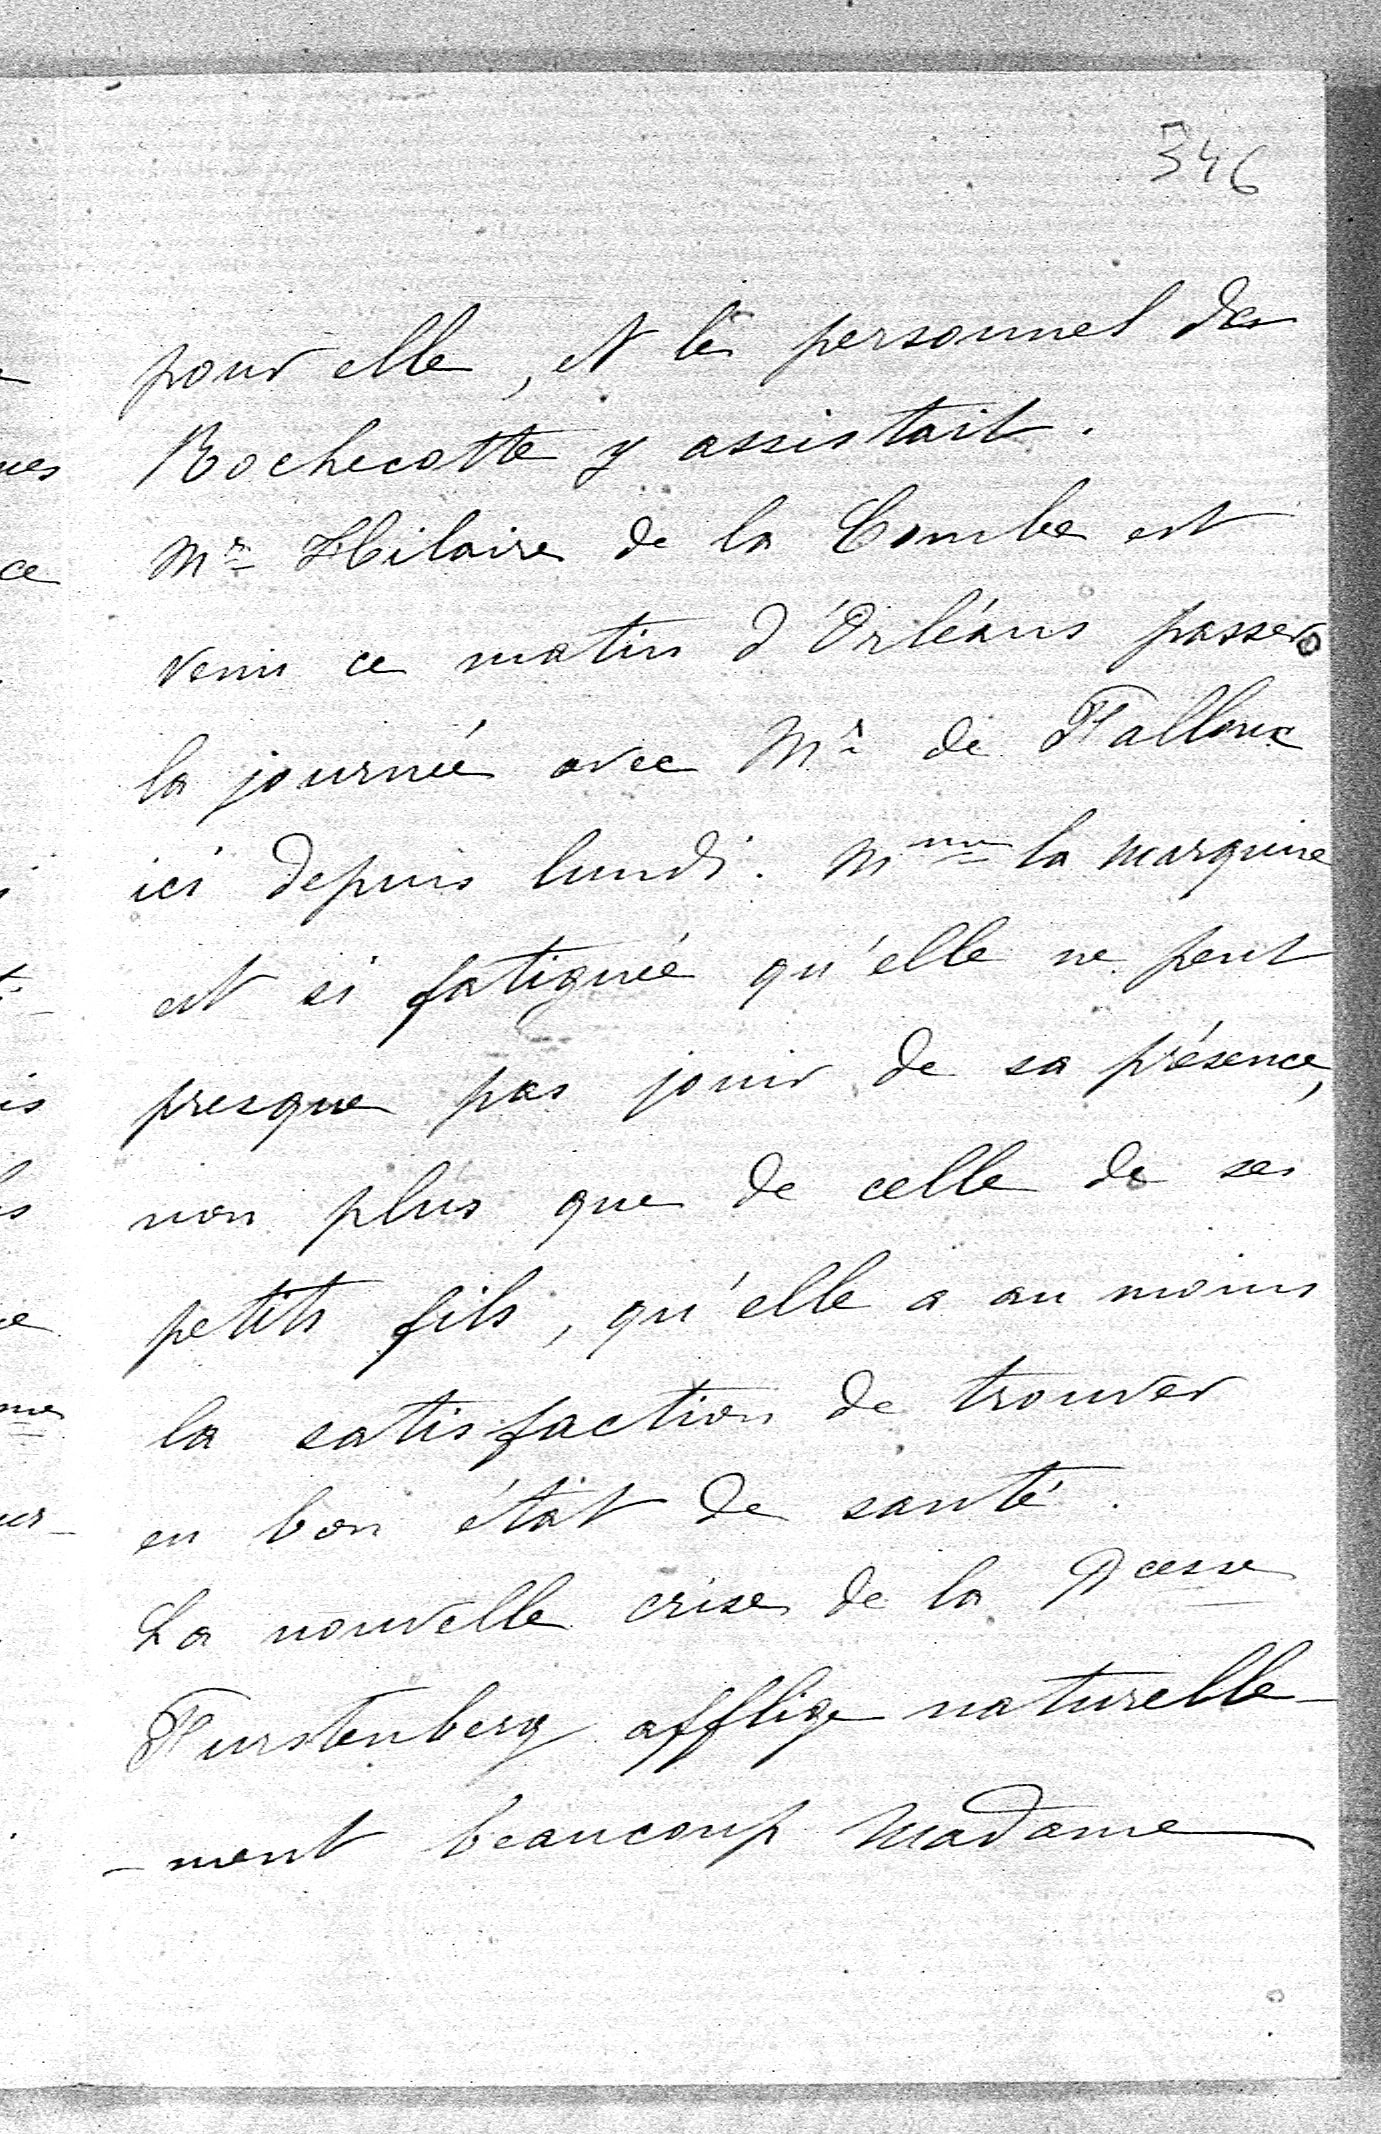 346
pour elle, et le personnel de
Rochecotte y assistait.
Mr Hilaire de la Combe est
venu ce matin d'Orléans passer
la journée avec Mr de Falloux
ici depuis lundi. Mme la marquise
est si fatiguée qu'elle ne peut
presque pas jouir de sa présence,
non plus que de celle de ses
petits fils, qu'elle a au moins
la satisfaction de trouver
en bon état de santé.
La nouvelle crise de la Pcesse
Furstenberg afflige naturelle-
-ment beaucoup Madame